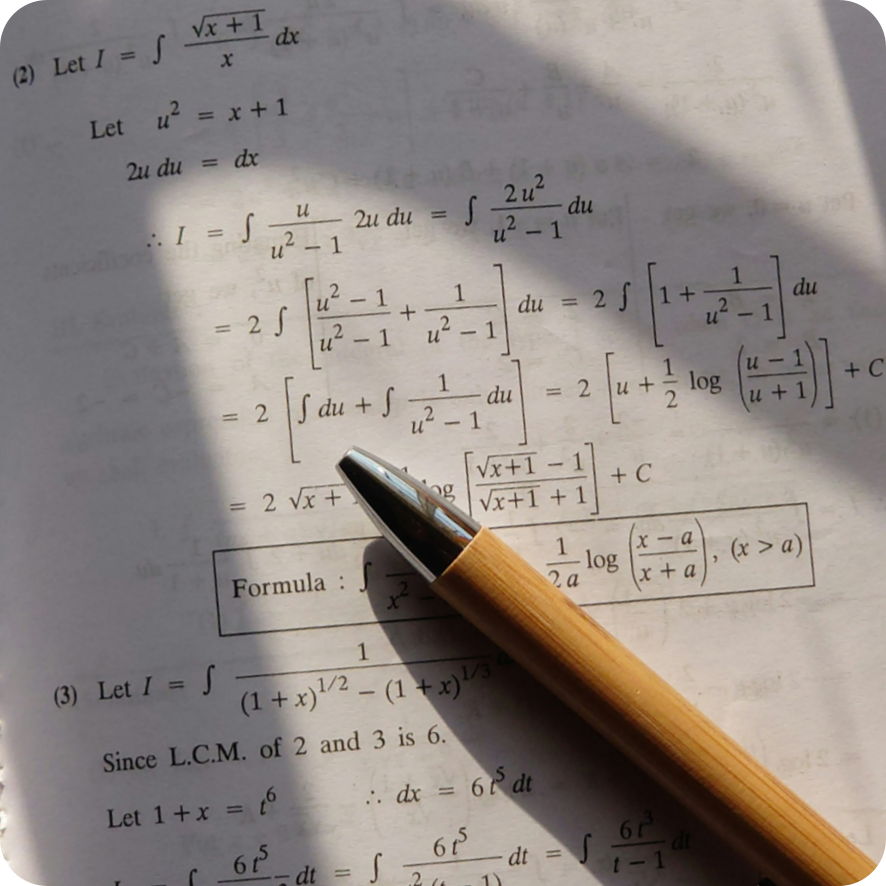 (2) Let I = ∫ √(x + 1) / x dx
Let u² = x + 1
2u du = dx
∴ I = ∫ u / (u² − 1) 2u du = ∫ 2u² / (u² − 1) du
= 2 ∫ [(u² − 1) / (u² − 1) + 1 / (u² − 1)] du = 2 ∫ [1 + 1 / (u² − 1)] du
= 2 [∫ du + ∫ 1 / (u² − 1) du] = 2 [u + 1/2 log ((u − 1) / (u + 1))] + C
= 2 √x + [(√(x+1) − 1) / (√(x+1) + 1)] + C
Formula : ∫ x² 1 / 2a log ((x − a) / (x + a)), (x > a)
(3) Let I = ∫ 1 / ((1 + x)^1/2 − (1 + x)^1/3)
Since L.C.M. of 2 and 3 is 6.
Let 1 + x = t⁶ ∴ dx = 6t⁵ dt
∫ 6t⁵ dt = ∫ 6t⁵ dt = ∫ 6t³ / (t − 1) dt